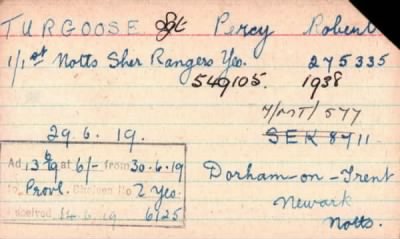 TURGOOSE Sgt Percy Robert
1/1st Notts Sher Rangers Yeo. 275335
549105. 1938
7/MT/577
SEK 8711
29.6.19.
Ad at 6/- from 30.6.19
to Provl. Chelsea No 2 Yeo.
received 14.6.19 6/25
Dorham-on-Trent
Newark
Notts.